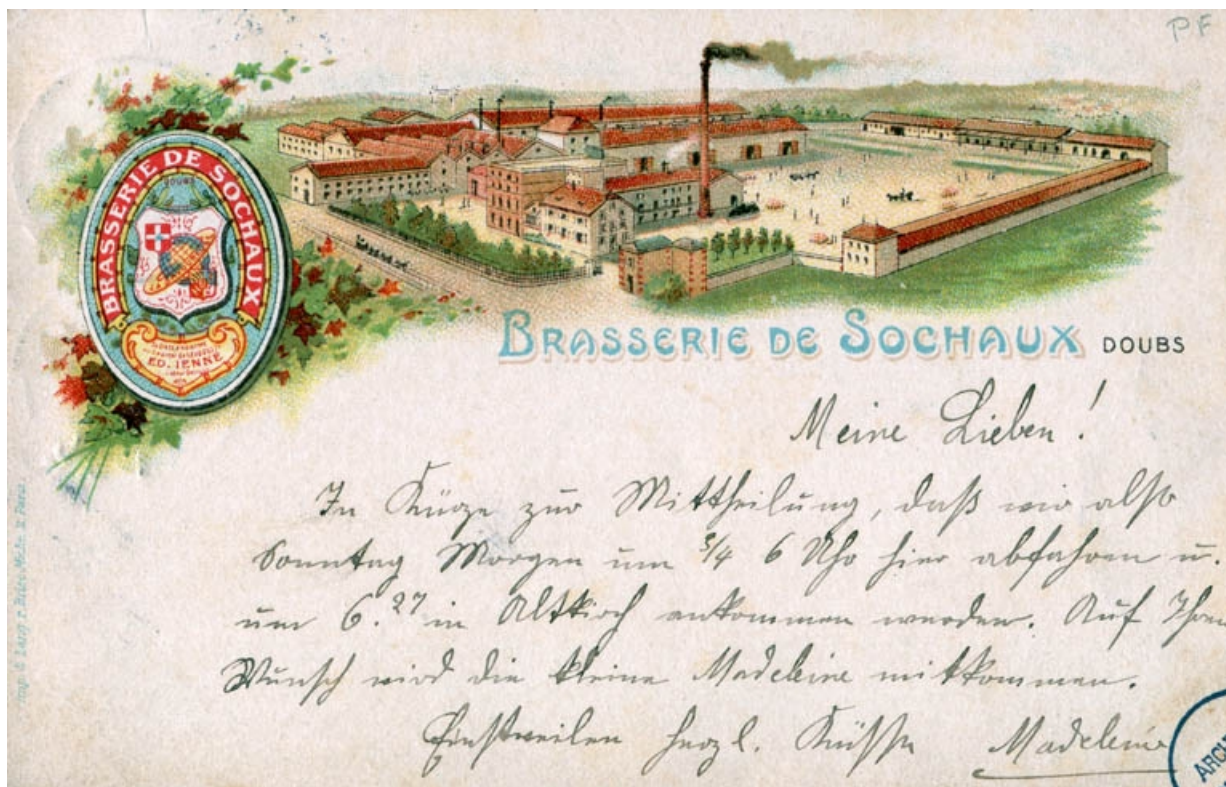 PF
BRASSERIE DE SOCHAUX
DOUBS
ED. IENNÉ
BRASSERIE DE SOCHAUX DOUBS
Meine Lieben!
In Kürze zur Mittheilung, daß wir also
Sonntag Morgen um 3/4 6 Uhr hier abfahren u.
um 6.27 in Altkirch ankommen werden. Auf Ihren
Wunsch wird die kleine Madeleine mitkommen.
Einstweilen herzl. Küsse Madeleine